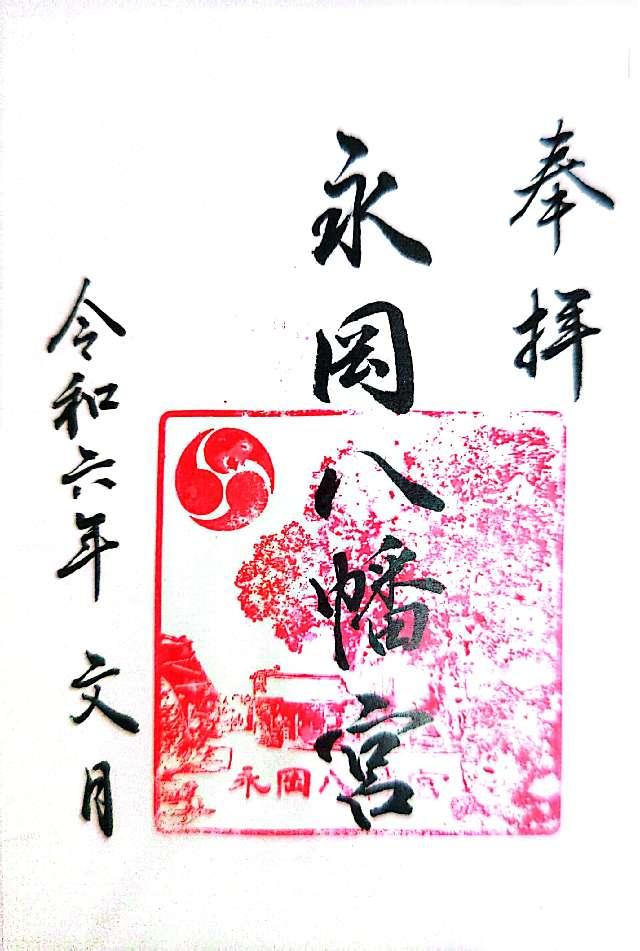 奉拝
永岡八幡宮
令和六年 文月
永岡八幡宮